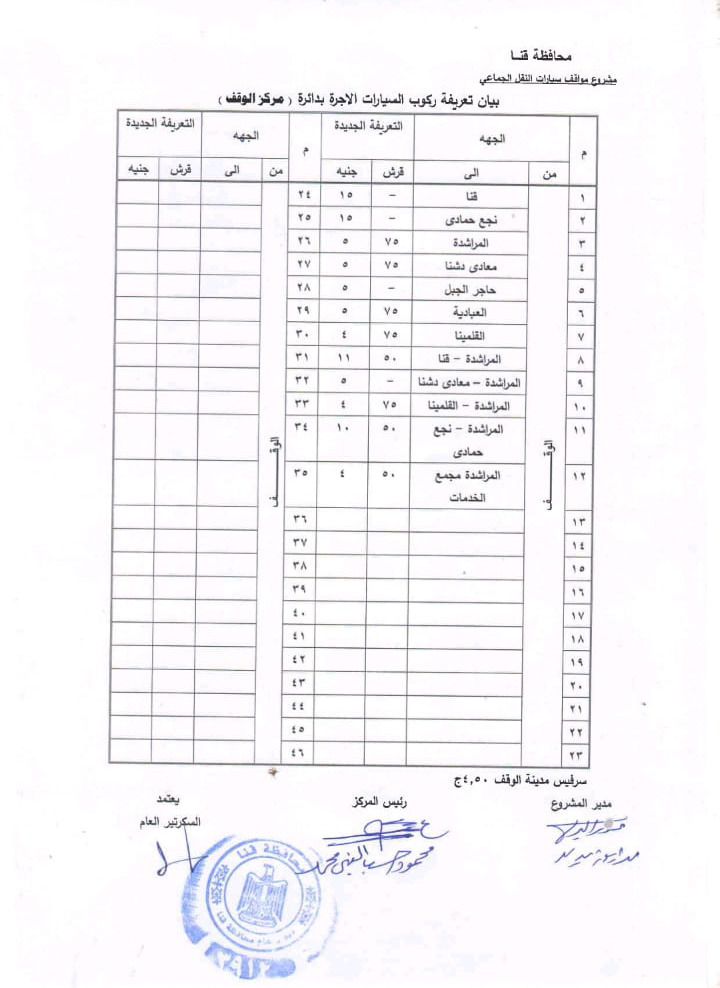 محافظة قنـا
مشروع مواقف سيارات النقل الجماعي
بيان تعريفة ركوب السيارات الاجرة بدائرة ( مركز الوقف )
م الجهه التعريفة الجديدة م الجهه التعريفة الجديدة
من الى قرش جنيه من الى قرش جنيه
الوقــــف الوقــــف
١ قنا – ١٥ ٢٤
٢ نجع حمادى – ١٥ ٢٥
٣ المراشدة ٧٥ ٥ ٢٦
٤ معادى دشنا ٧٥ ٥ ٢٧
٥ حاجر الجبل – ٥ ٢٨
٦ العبادية ٧٥ ٥ ٢٩
٧ القلمينا ٧٥ ٤ ٣٠
٨ المراشدة – قنا ٥٠ ١١ ٣١
٩ المراشدة – معادى دشنا – ٥ ٣٢
١٠ المراشدة – القلمينا ٧٥ ٤ ٣٣
١١ المراشدة – نجع ٥٠ ١٠ ٣٤
حمادى
١٢ المراشدة مجمع ٥٠ ٤ ٣٥
الخدمات
١٣ ٣٦
١٤ ٣٧
١٥ ٣٨
١٦ ٣٩
١٧ ٤٠
١٨ ٤١
١٩ ٤٢
٢٠ ٤٣
٢١ ٤٤
٢٢ ٤٥
٢٣ ٤٦
سرفيس مدينة الوقف ٤,٥٠ج
مدير المشروع رئيس المركز يعتمد
السكرتير العام
محافظة قنا